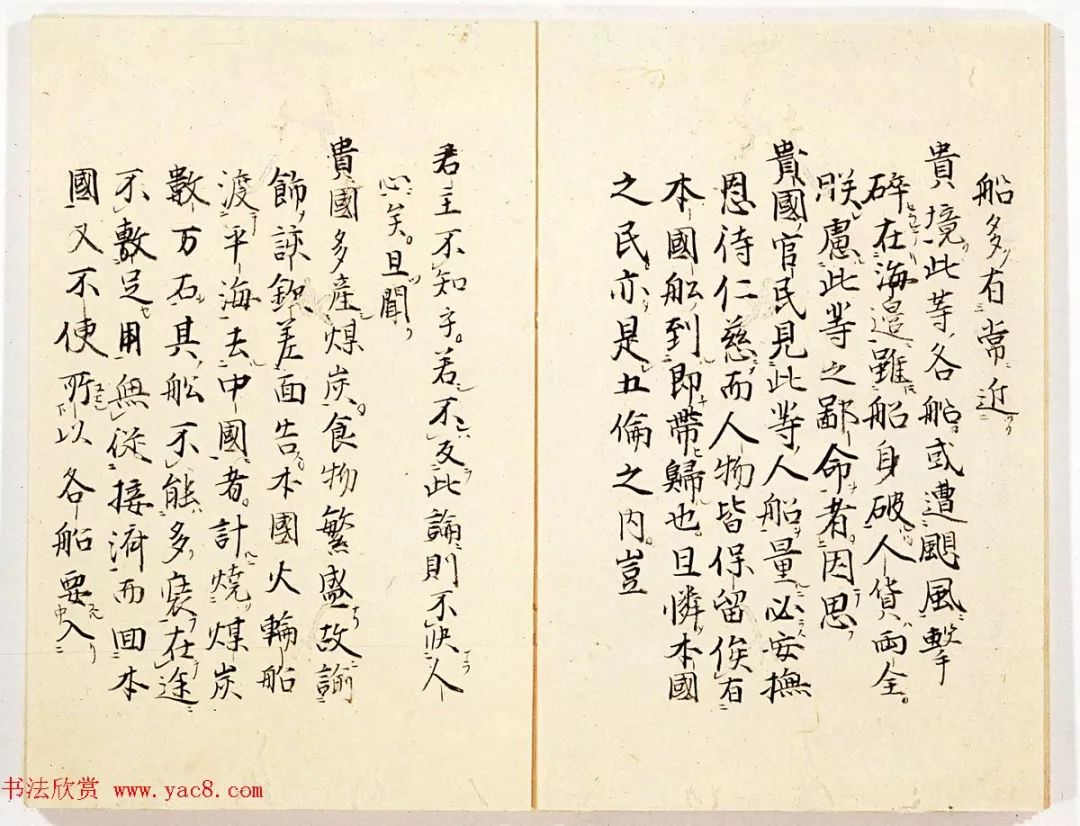 船多有常近
貴境此等各船。或遭颶風擊
碎在海邊雖船身破人貨兩全。
朕慮此等之鄙命者。因思
貴國官民見此等人船量必安撫
恩待仁慈而人物皆保留俟有
本國船到即帶歸也。且憐本國
之民亦是五倫之内。豈
君主不知乎。若不及此論則不快人
心矣。且聞
貴國多產煤炭。食物繁盛故諭
飭該欽差面告本國火輪船
渡平海去中國者。計燒煤炭
數万石其船不能多裝在途
不敷足用無從接濟而回本
國又不使所以各船要入
书法欣赏 www.yac8.com